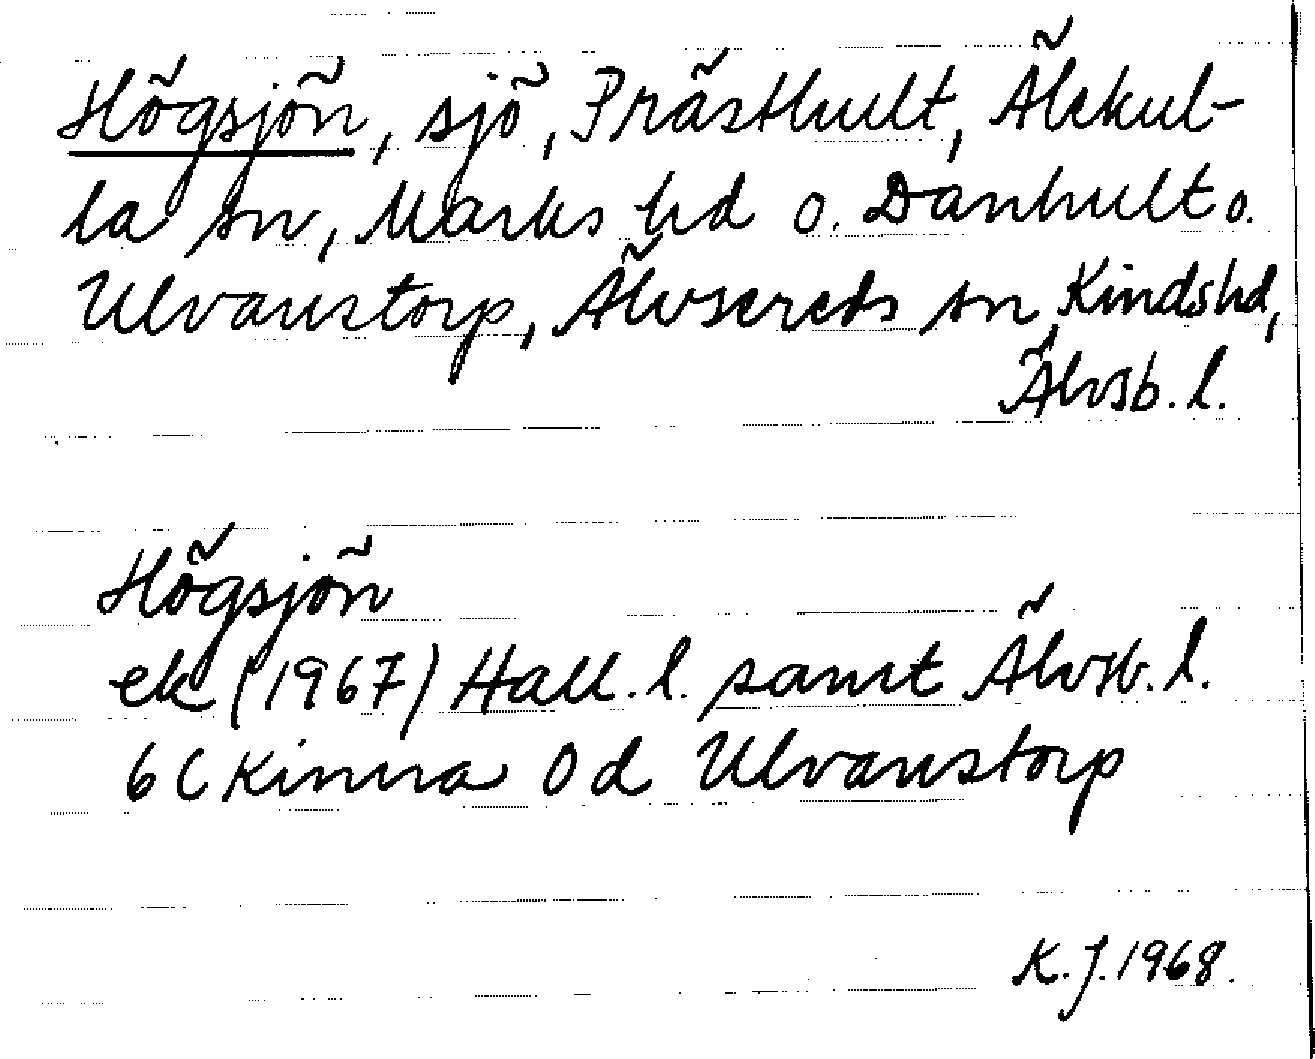 Högsjön, sjö, Prästhult, Älekul-
la sn, Marks hd o. Danhult o.
Ulvanstorp, Älvsereds sn, Kinds hd,
Älvsb. l.
Högsjön
ek (1967) Hall. l. samt Älvsb. l.
6C Kinna 0d Ulvanstorp
K. J. 1968.